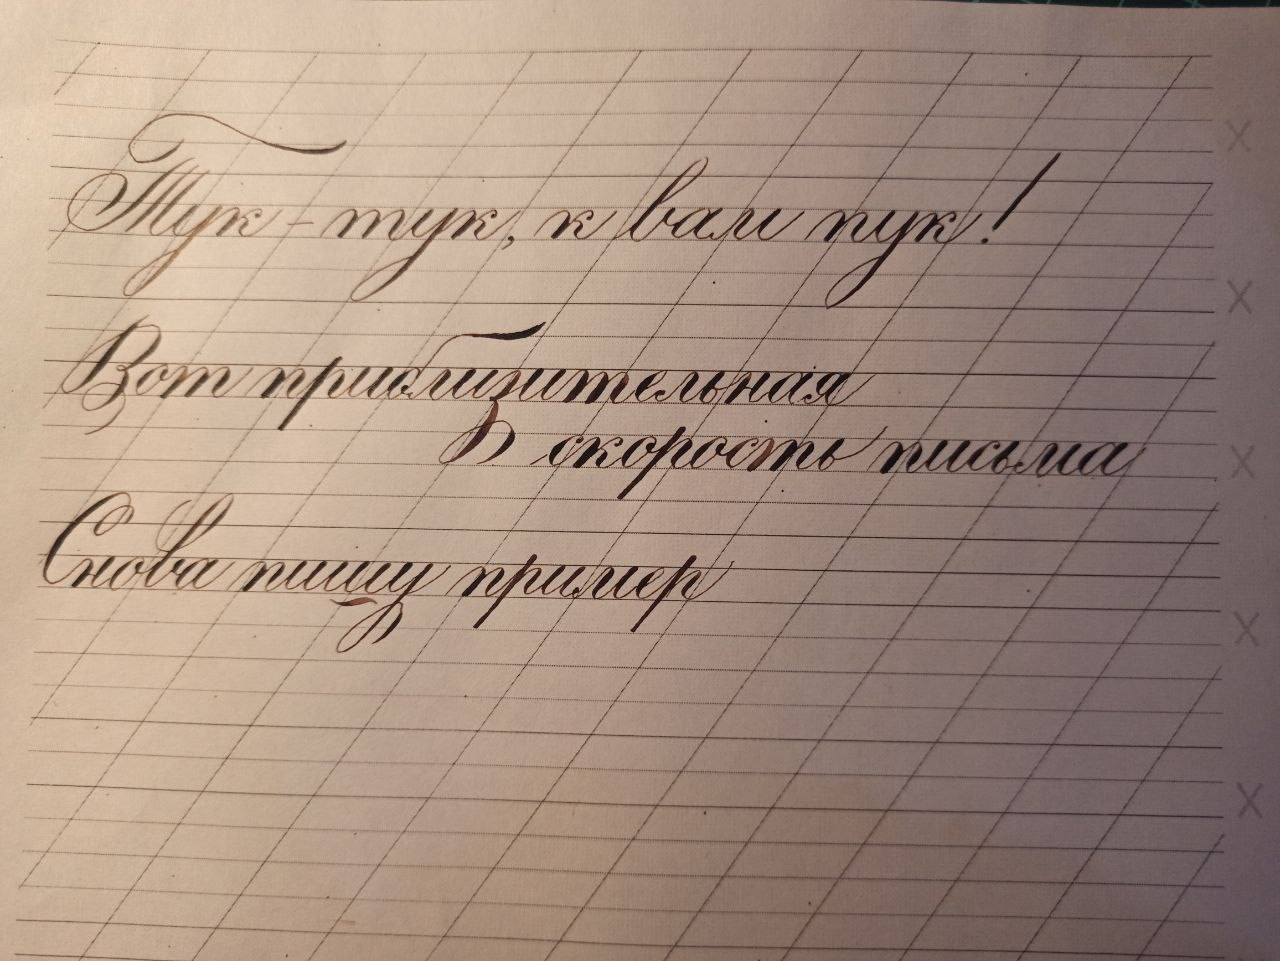 Тук - тук, к вам пук!
Вот приблизительная
скорость письма
Снова пишу пример